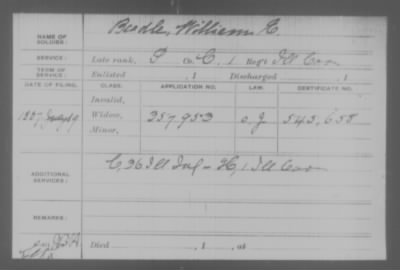 NAME OF SOLDIER: Beedle, William E.
SERVICE: Late rank, P Co. C, 1 Reg't Ill Cav
TERM OF SERVICE: Enlisted , 1 Discharged , 1
DATE OF FILING. CLASS. APPLICATION NO. LAW. CERTIFICATE NO.
Invalid,
1887 Widow, 357.953 O. J 543,658
Minor,
ADDITIONAL SERVICES: C, 36 Ill Inf - H, 1 Ill Cav
REMARKS:
Died , 1 , at